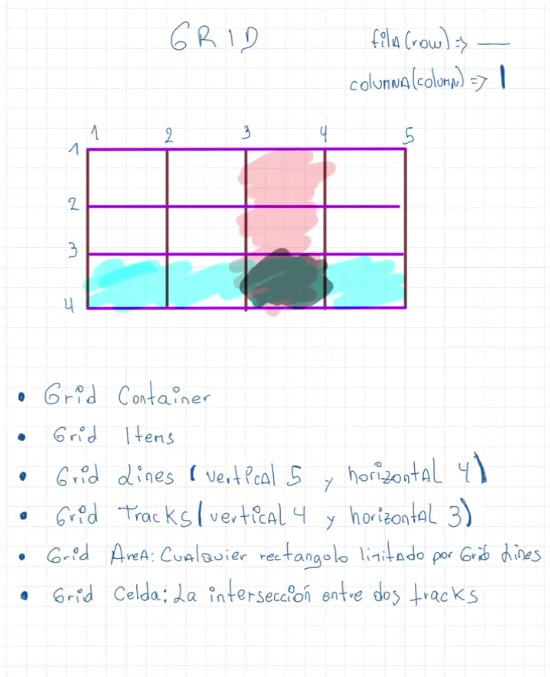 GRID
fila(row) => —
columna(column) => |
1 2 3 4 5
1
2
3
4
• Grid Container
• Grid Items
• Grid Lines (vertical 5 y horizontal 4)
• Grid Tracks(vertical 4 y horizontal 3)
• Grid Area: Cualquier rectangulo limitado por Grid Lines
• Grid Celda: La intersección entre dos tracks